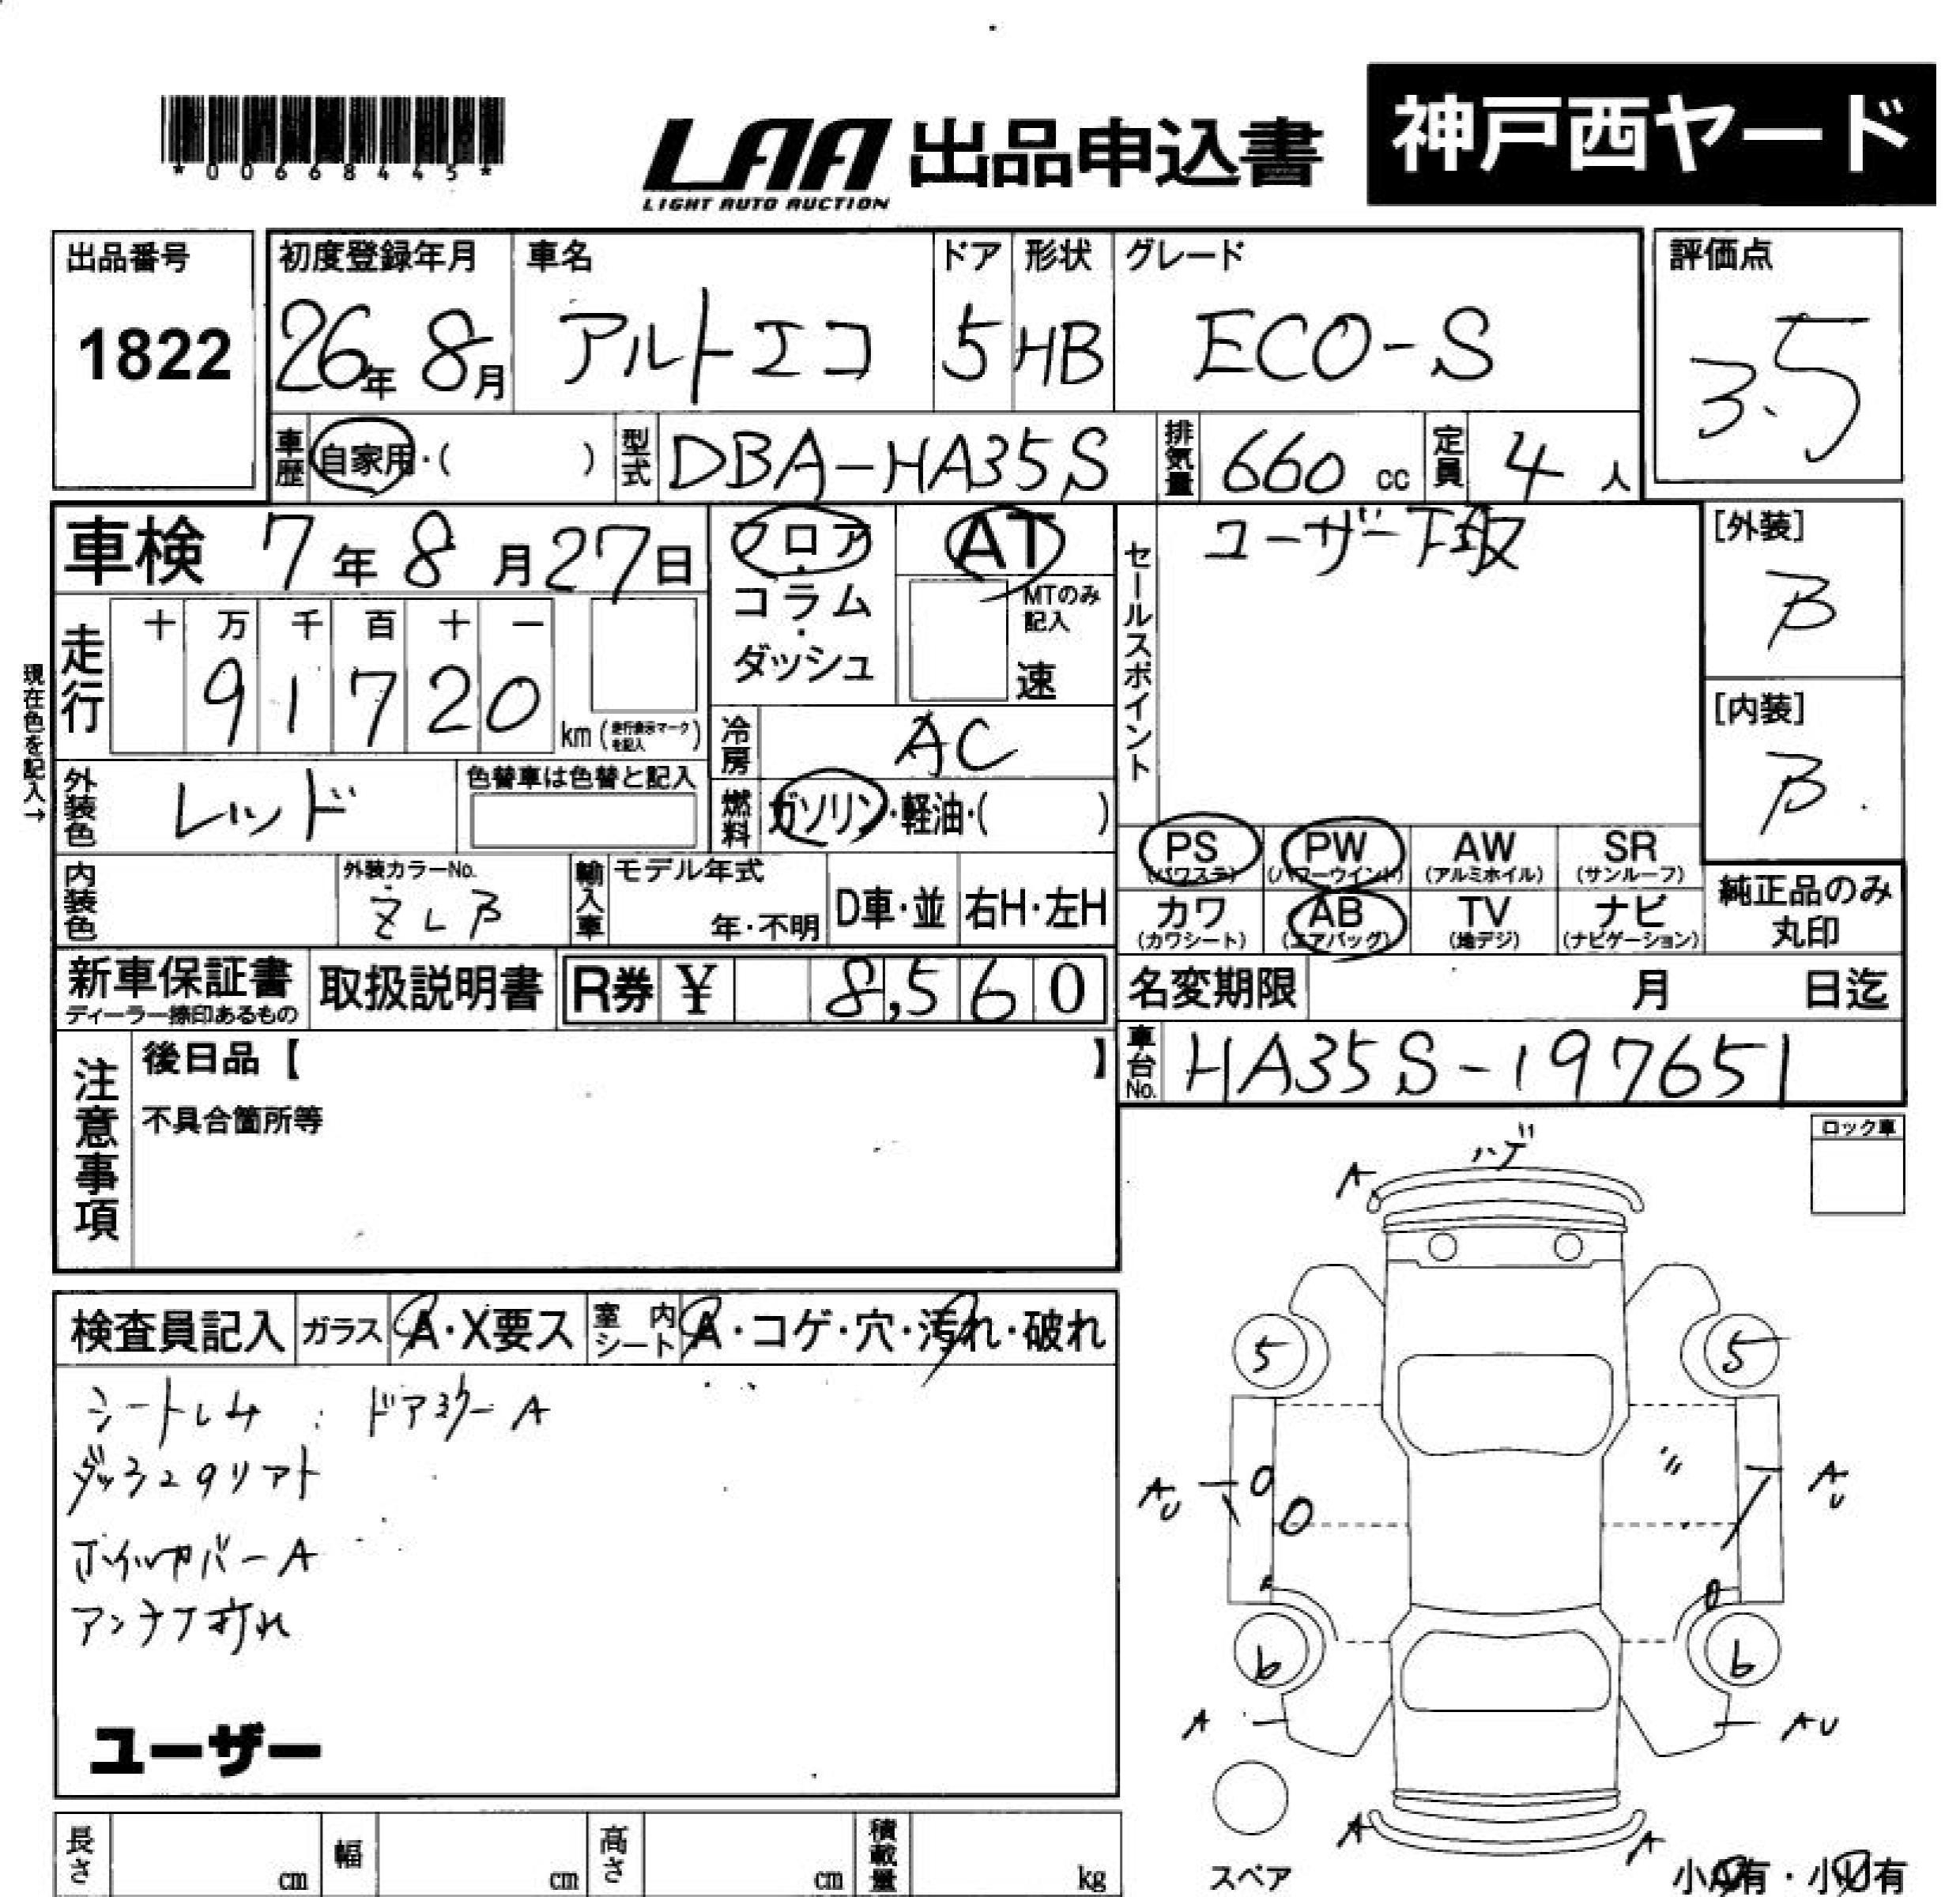 *00668445*
LAA 出品申込書 神戸西ヤード
LIGHT AUTO AUCTION
出品番号 初度登録年月 車名 ドア 形状 グレード 評価点
1822 26年 8月 アルトエコ 5 HB ECO-S 3.5
車歴 自家用・( ) 型式 DBA-HA35S 排気量 660 cc 定員 4 人
車検 7年 8月 27日 フロア・コラム・ダッシュ AT セールスポイント ユーザー下取 [外装]
B
MTのみ記入
速
走行 十 万 千 百 十 一
9 1 7 2 0 km (走行表示マークを記入)
[内装]
B
現在色を記入→
冷房 AC
外装色 レッド 色替車は色替と記入 燃料 ガソリン・軽油・( )
PS (パワステ) PW (パワーウインド) AW (アルミホイル) SR (サンルーフ)
カワ (カワシート) AB (エアバッグ) TV (地デジ) ナビ (ナビゲーション)
純正品のみ
丸印
内装色 外装カラーNo. 輸入車 モデル年式 年・不明 D車・並 右H・左H
新車保証書 ディーラー捺印あるもの 取扱説明書 R券 ¥ 8,560 名変期限 月 日迄
車台No. HA35S-197651
注意事項 後日品【 】
不具合箇所等
ロック車
ハゲ
A
検査員記入 ガラス A・X要ス 室内シート A・コゲ・穴・汚れ・破れ
5 5
シートレム ドアミラーA
ダッシュクリアト
AU AU
ホイルカバーA
アンテナ折れ
6 6
A AU
ユーザー
A A
スペア 小A有・小U有
長さ cm 幅 cm 高さ cm 積載量 kg